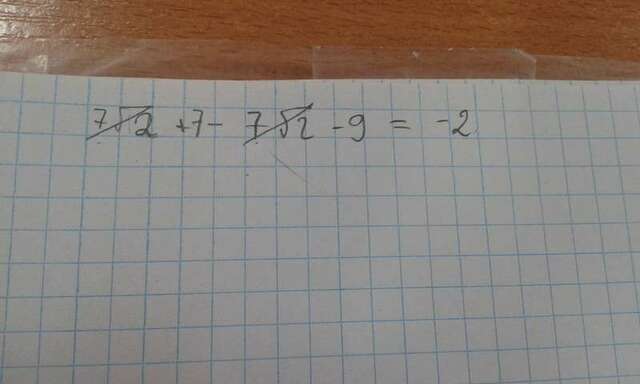 7√2 + 7 - 7√2 - 9 = -2